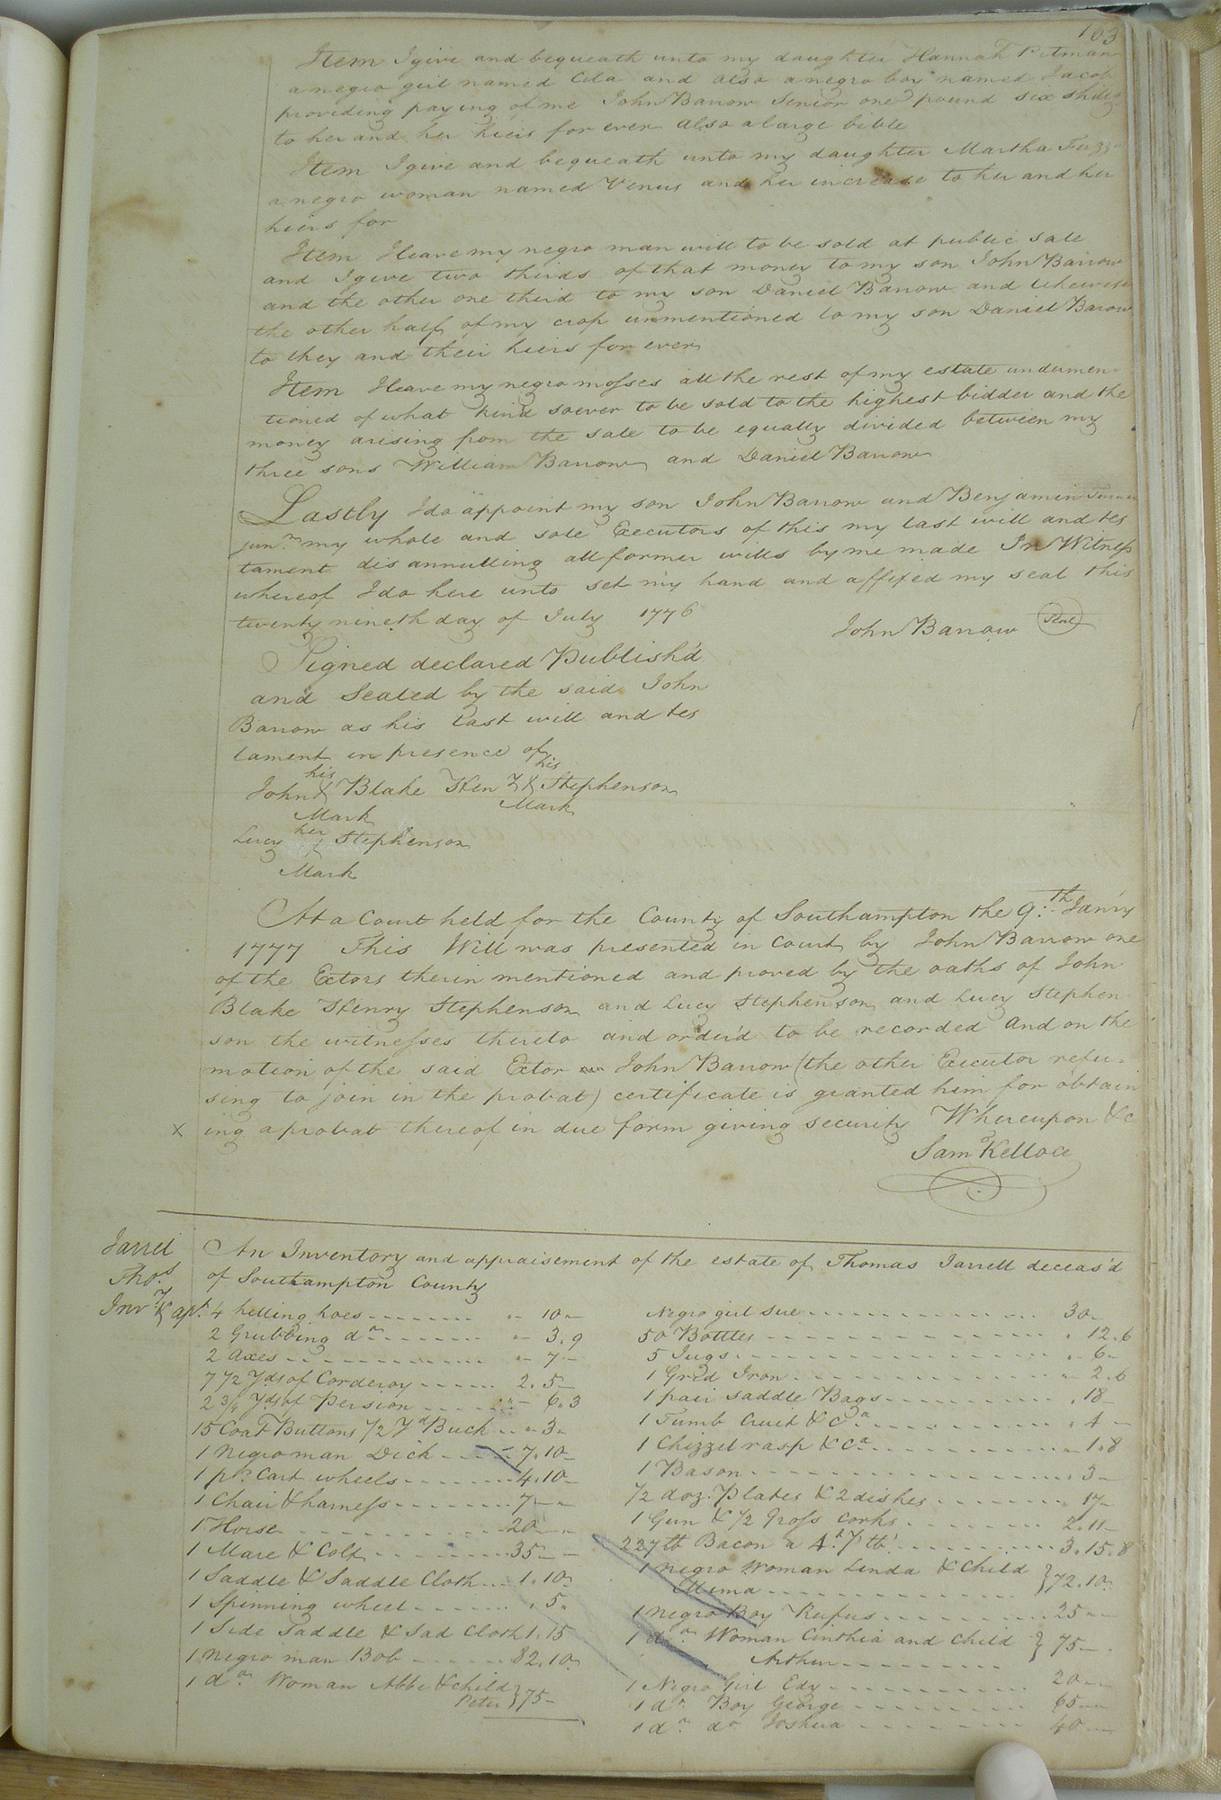 103
Item I give and bequeath unto my daughter Hannah Pitman
a negro girl named Cela and also a negro boy named Jacob
providing paying of me John Barrow Senior one pound six shillg
to her and her heirs for ever also a large bible
Item I give and bequeath unto my daughter Martha
a negro woman named Venus and her increase to her and her
heirs for
Item I leave my negro man will to be sold at public sale
and I give two thirds of that money to my son John Barrow
and the other one third to my son Daniel Barrow and likewise
the other half of my crop unmentioned to my son Daniel Barow
to they and their heirs for ever
Item I leave my negro mosses all the rest of my estate undumen-
tioned of what kind soever to be sold to the highest bidder and the
money arising from the sale to be equally divided between my
three sons William Barrow and Daniel Barrow
Lastly I do appoint my son John Barrow and Benjamin Turner
junr. my whole and sole Executors of this my last will and tes
tament disannulling all former wills by me made In Witness
whereof I do here unto set my hand and affixed my seal this
twenty nineth day of July 1776
John Barrow Seal
Signed declared Publish'd
and Sealed by the said John
Barrow as his last will and tes
tament in presence of
his his
John X Blake Hen y X Stephenson
Mark Mark
her
Lucy X Stephenson
Mark
At a Court held for the County of Southampton the 9th. Janry
1777 This Will was presented in Court by John Barrow one
of the Extors therin mentioned and proved by the oaths of John
Blake Henry Stephenson and Lucy Stephenson and Lucy Stephen
son the witnesses thereto and order'd to be recorded And on the
motion of the said Extor John Barrow (the other Executor refu-
sing to join in the probat) certificate is granted him for obtain
x ing a probat thereof in due form giving security Whereupon &c
Saml Kelloce
Jarrel
Thos
Invy & apt.
An Inventory and appraisement of the estate of Thomas Jarrell deceas'd
of Southampton County
4 helling hoes - - - - " 10 -
2 Grubbing do - - - - " 3.9
2 Axes - - - - " 7 -
7 1/2 Yds of Corderoy - - - - 2.5 -
2 3/4 Yds of Persion - - - - " 6.3
15 Coat Buttons 1/2 Yd Buck - - " 3 -
1 Negro man Dick - - - - 7.10 -
1 pr. Cart wheels - - - - 4.10 -
1 Chair & harness - - - - 7 - -
1 Horse - - - - 20 - -
1 Mare & Colt - - - - 35 - -
1 Saddle & Saddle Cloth - - 1.10 -
1 Spinning wheel - - - - . 5 -
1 Side Saddle & Sad Cloth 1.15
1 Negro man Bob - - - - 82.10 -
1 do Woman Abbe & child
Peter } 75 -
Negro girl Sue - - - - 30 -
50 Bottles - - - - . 12.6
5 Jugs - - - - . 6 -
1 Grid Iron - - - - " 2.6
1 pair Saddle Bags - - - - . 18 -
1 Tumb Cruit & Ca - - - - . 4 -
1 Chizzel rasp & Ca - - - - " 1.8
1 Bason - - - - 3 -
1/2 doz. Plates & 2 dishes - - - - 17 -
1 Gun & 1/2 Gross corks - - - - 2.11 -
227 lb Bacon a 4d. 7 lb - - - - 3.15.8
1 Negro Woman Linda & Child
Mima - - - - } 72.10 -
1 Negro Boy Rufus - - - - 25 - -
1 do Woman Cinthia and Child
Arthur - - - - } 75 - .
1 Negro Girl Edy - - - - 20 - -
1 do Boy George - - - - 65 - -
1 do do Joshua - - - - 40 - -